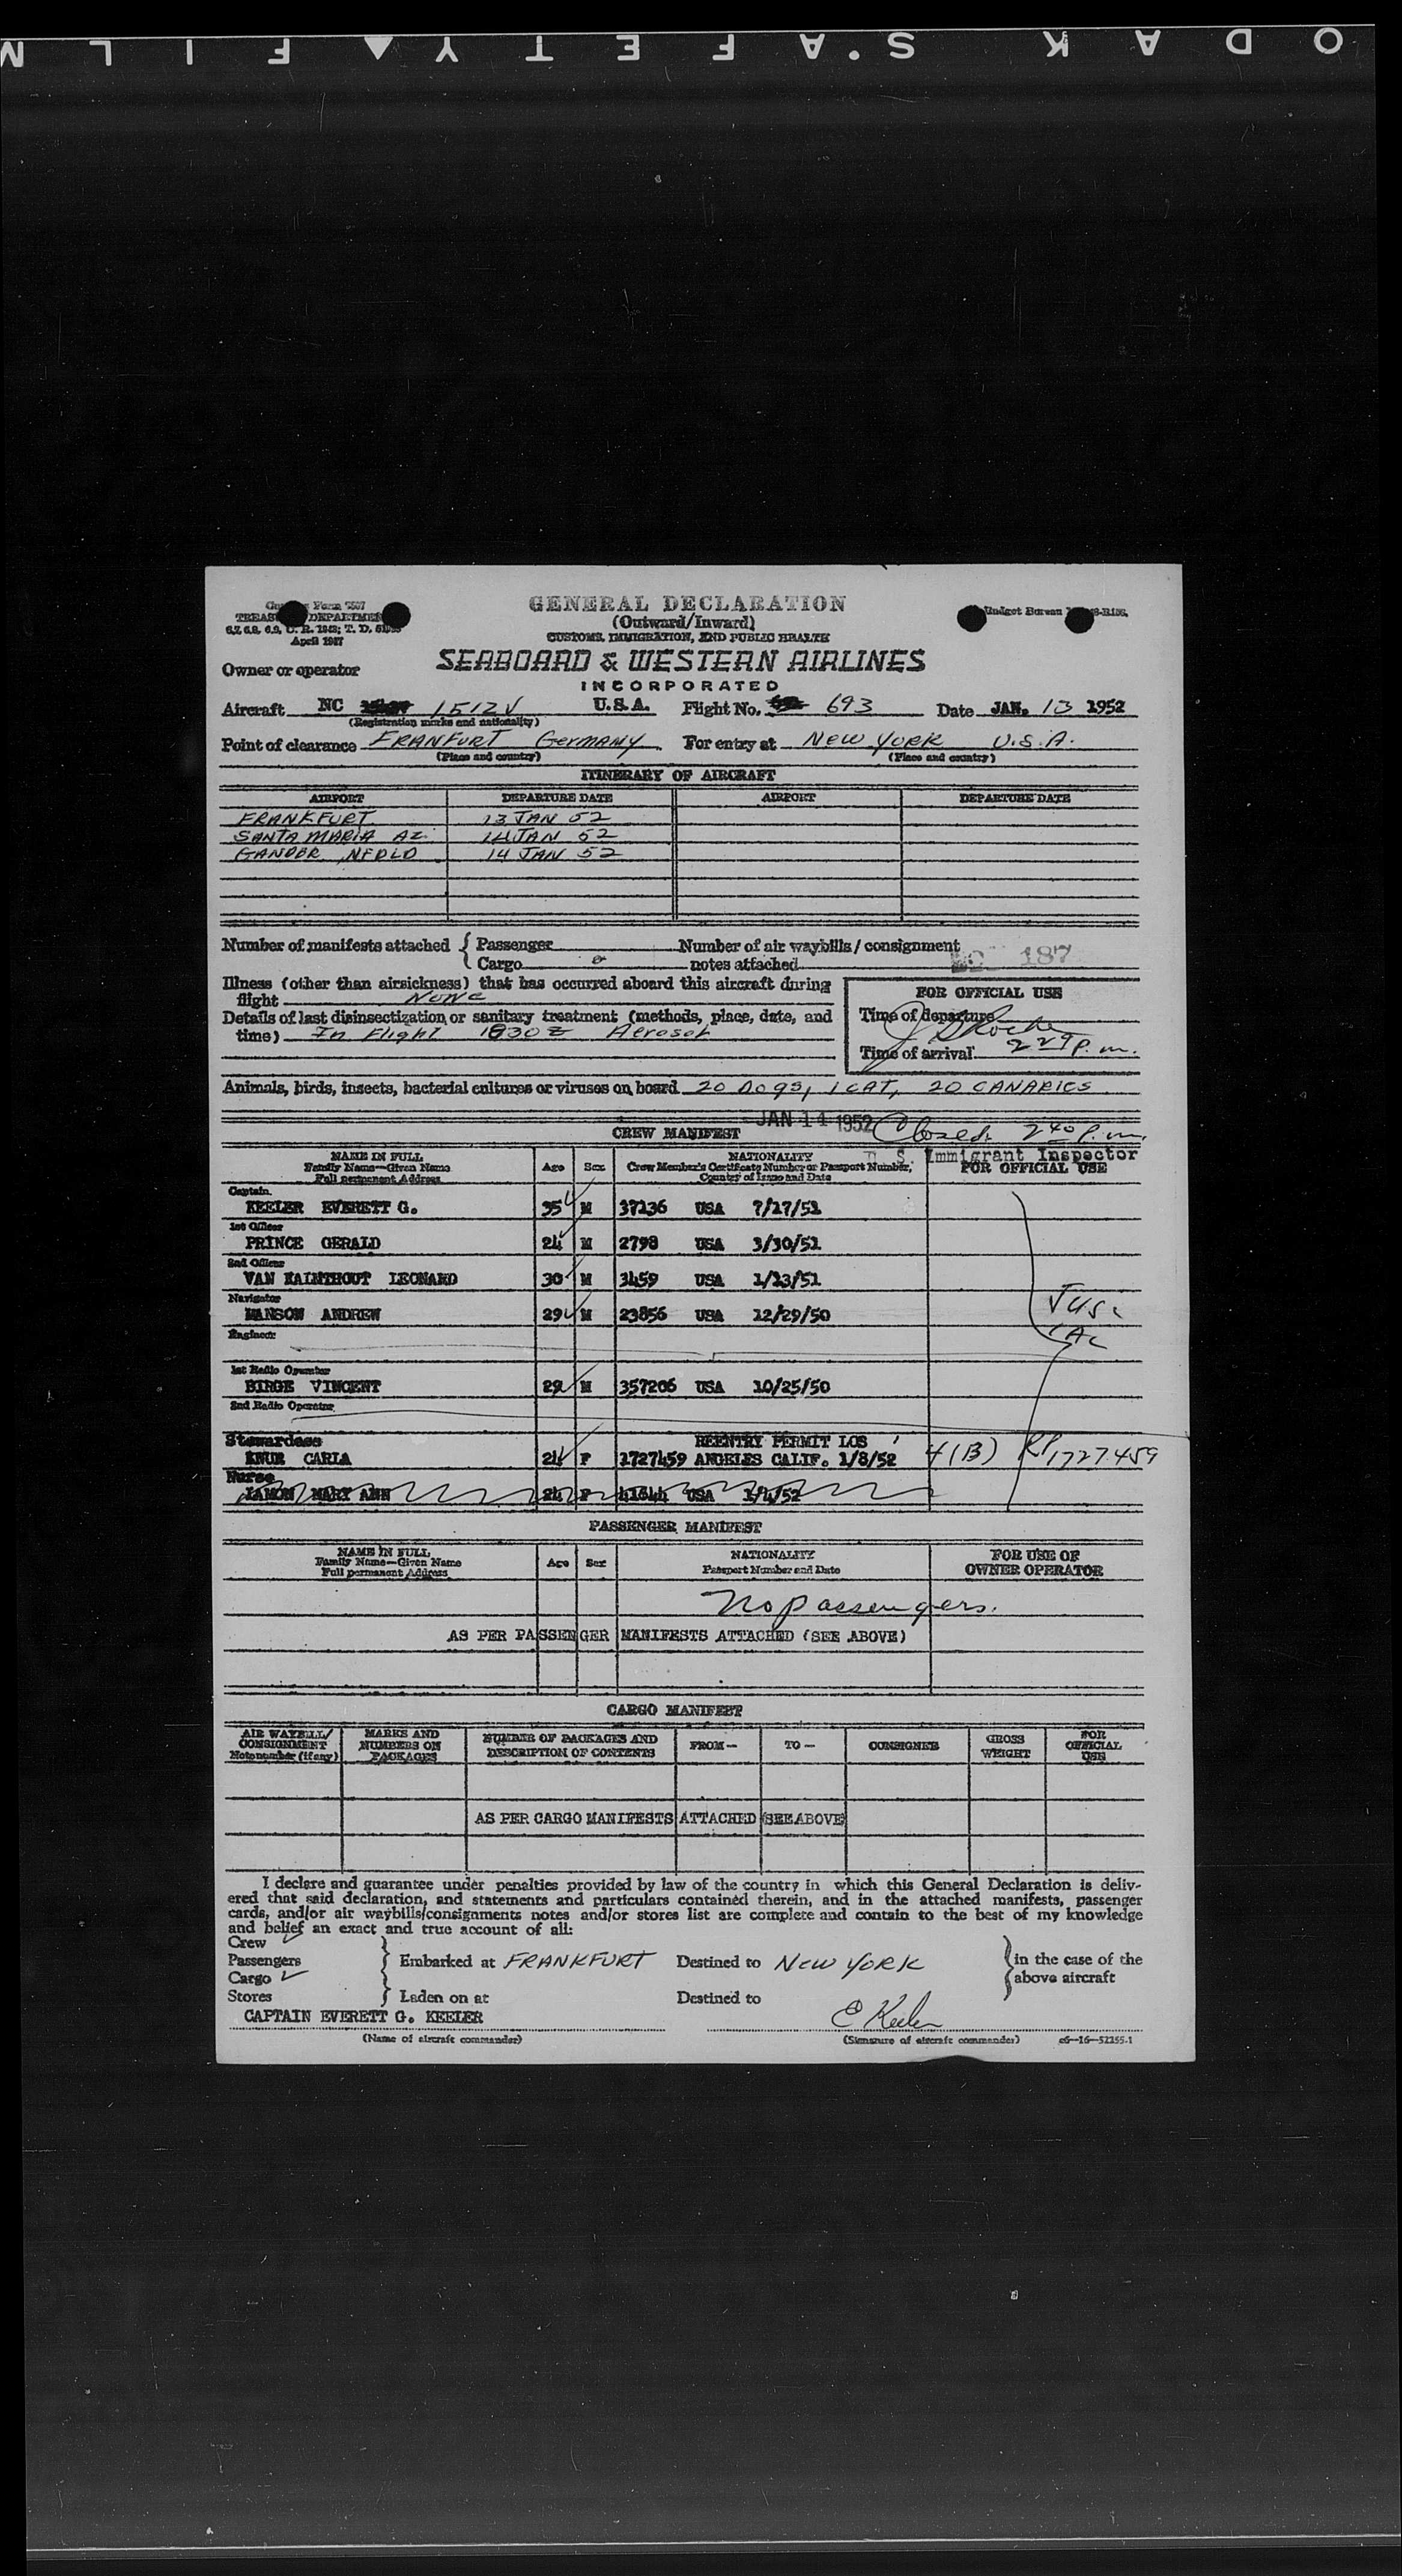 KODAK SAFETY FILM
GENERAL DECLARATION
(Outward/Inward)
CUSTOMS, IMMIGRATION, AND PUBLIC HEALTH
Form 7507
April 1947
Budget Bureau
Owner or operator
SEABOARD & WESTERN AIRLINES
INCORPORATED
Aircraft NC 1512V U.S.A. Flight No. 693 Date JAN. 13 1952
(Registration marks and nationality)
Point of clearance FRANFURT GERMANY For entry at NEW YORK U.S.A.
(Place and country) (Place and country)
ITINERARY OF AIRCRAFT
AIRPORT DEPARTURE DATE AIRPORT DEPARTURE DATE
FRANKFURT 13 JAN 52
SANTA MARIA AZ. 14 JAN 52
GANDER, NFDLD 14 JAN 52
Number of manifests attached { Passenger Number of air waybills / consignment
Cargo notes attached 187
Illness (other than airsickness) that has occurred aboard this aircraft during
flight None
Details of last disinsectization or sanitary treatment (methods, place, date, and
time) In Flight 1830Z Aerosol
FOR OFFICIAL USE
Time of departure
Time of arrival 2 29 P. m.
Animals, birds, insects, bacterial cultures or viruses on board 20 Dogs, 1 CAT, 20 CANARIES
JAN 14 1952 Closed 2 40 P. m.
CREW MANIFEST
U. S. Immigrant Inspector
NAME IN FULL Age Sex NATIONALITY FOR OFFICIAL USE
Family Name—Given Name Crew Member's Certificate Number or Passport Number,
Full permanent Address Country of Issue and Date
Captain
KEELER EVERETT G. 35 M 37136 USA 7/17/51
1st Officer
PRINCE GERALD 24 M 2798 USA 3/30/51
2nd Officer
VAN KALMTHOUT LEONARD 30 M 3459 USA 1/23/51
Navigator
MANSON ANDREW 29 M 23856 USA 12/29/50
Engineer
1st Radio Operator
BIRGE VINCENT 29 M 357206 USA 10/25/50
2nd Radio Operator
Stewardess REENTRY PERMIT LOS
KNUR CARLA 24 F 1727459 ANGELES CALIF. 1/8/52 4(B) RP 1727459
Nurse
LAMON MARY ANN 24 F 41344 USA 1/4/52
PASSENGER MANIFEST
NAME IN FULL Age Sex NATIONALITY FOR USE OF
Family Name—Given Name Passport Number and Date OWNER OPERATOR
Full permanent Address
No passengers.
AS PER PASSENGER MANIFESTS ATTACHED (SEE ABOVE)
CARGO MANIFEST
AIR WAYBILL/ MARKS AND NUMBER OF PACKAGES AND FROM— TO— CONSIGNEE GROSS FOR
CONSIGNMENT NUMBERS ON DESCRIPTION OF CONTENTS WEIGHT OFFICIAL
Note number (if any) PACKAGES USE
AS PER CARGO MANIFESTS ATTACHED (SEE ABOVE
I declare and guarantee under penalties provided by law of the country in which this General Declaration is deliv-
ered that said declaration, and statements and particulars contained therein, and in the attached manifests, passenger
cards, and/or air waybills/consignments notes and/or stores list are complete and contain to the best of my knowledge
and belief an exact and true account of all:
Crew
Passengers Embarked at FRANKFURT Destined to NEW YORK in the case of the
Cargo above aircraft
Stores Laden on at Destined to
CAPTAIN EVERETT G. KEELER E Keeler
(Name of aircraft commander) (Signature of aircraft commander) c6—16—52155-1